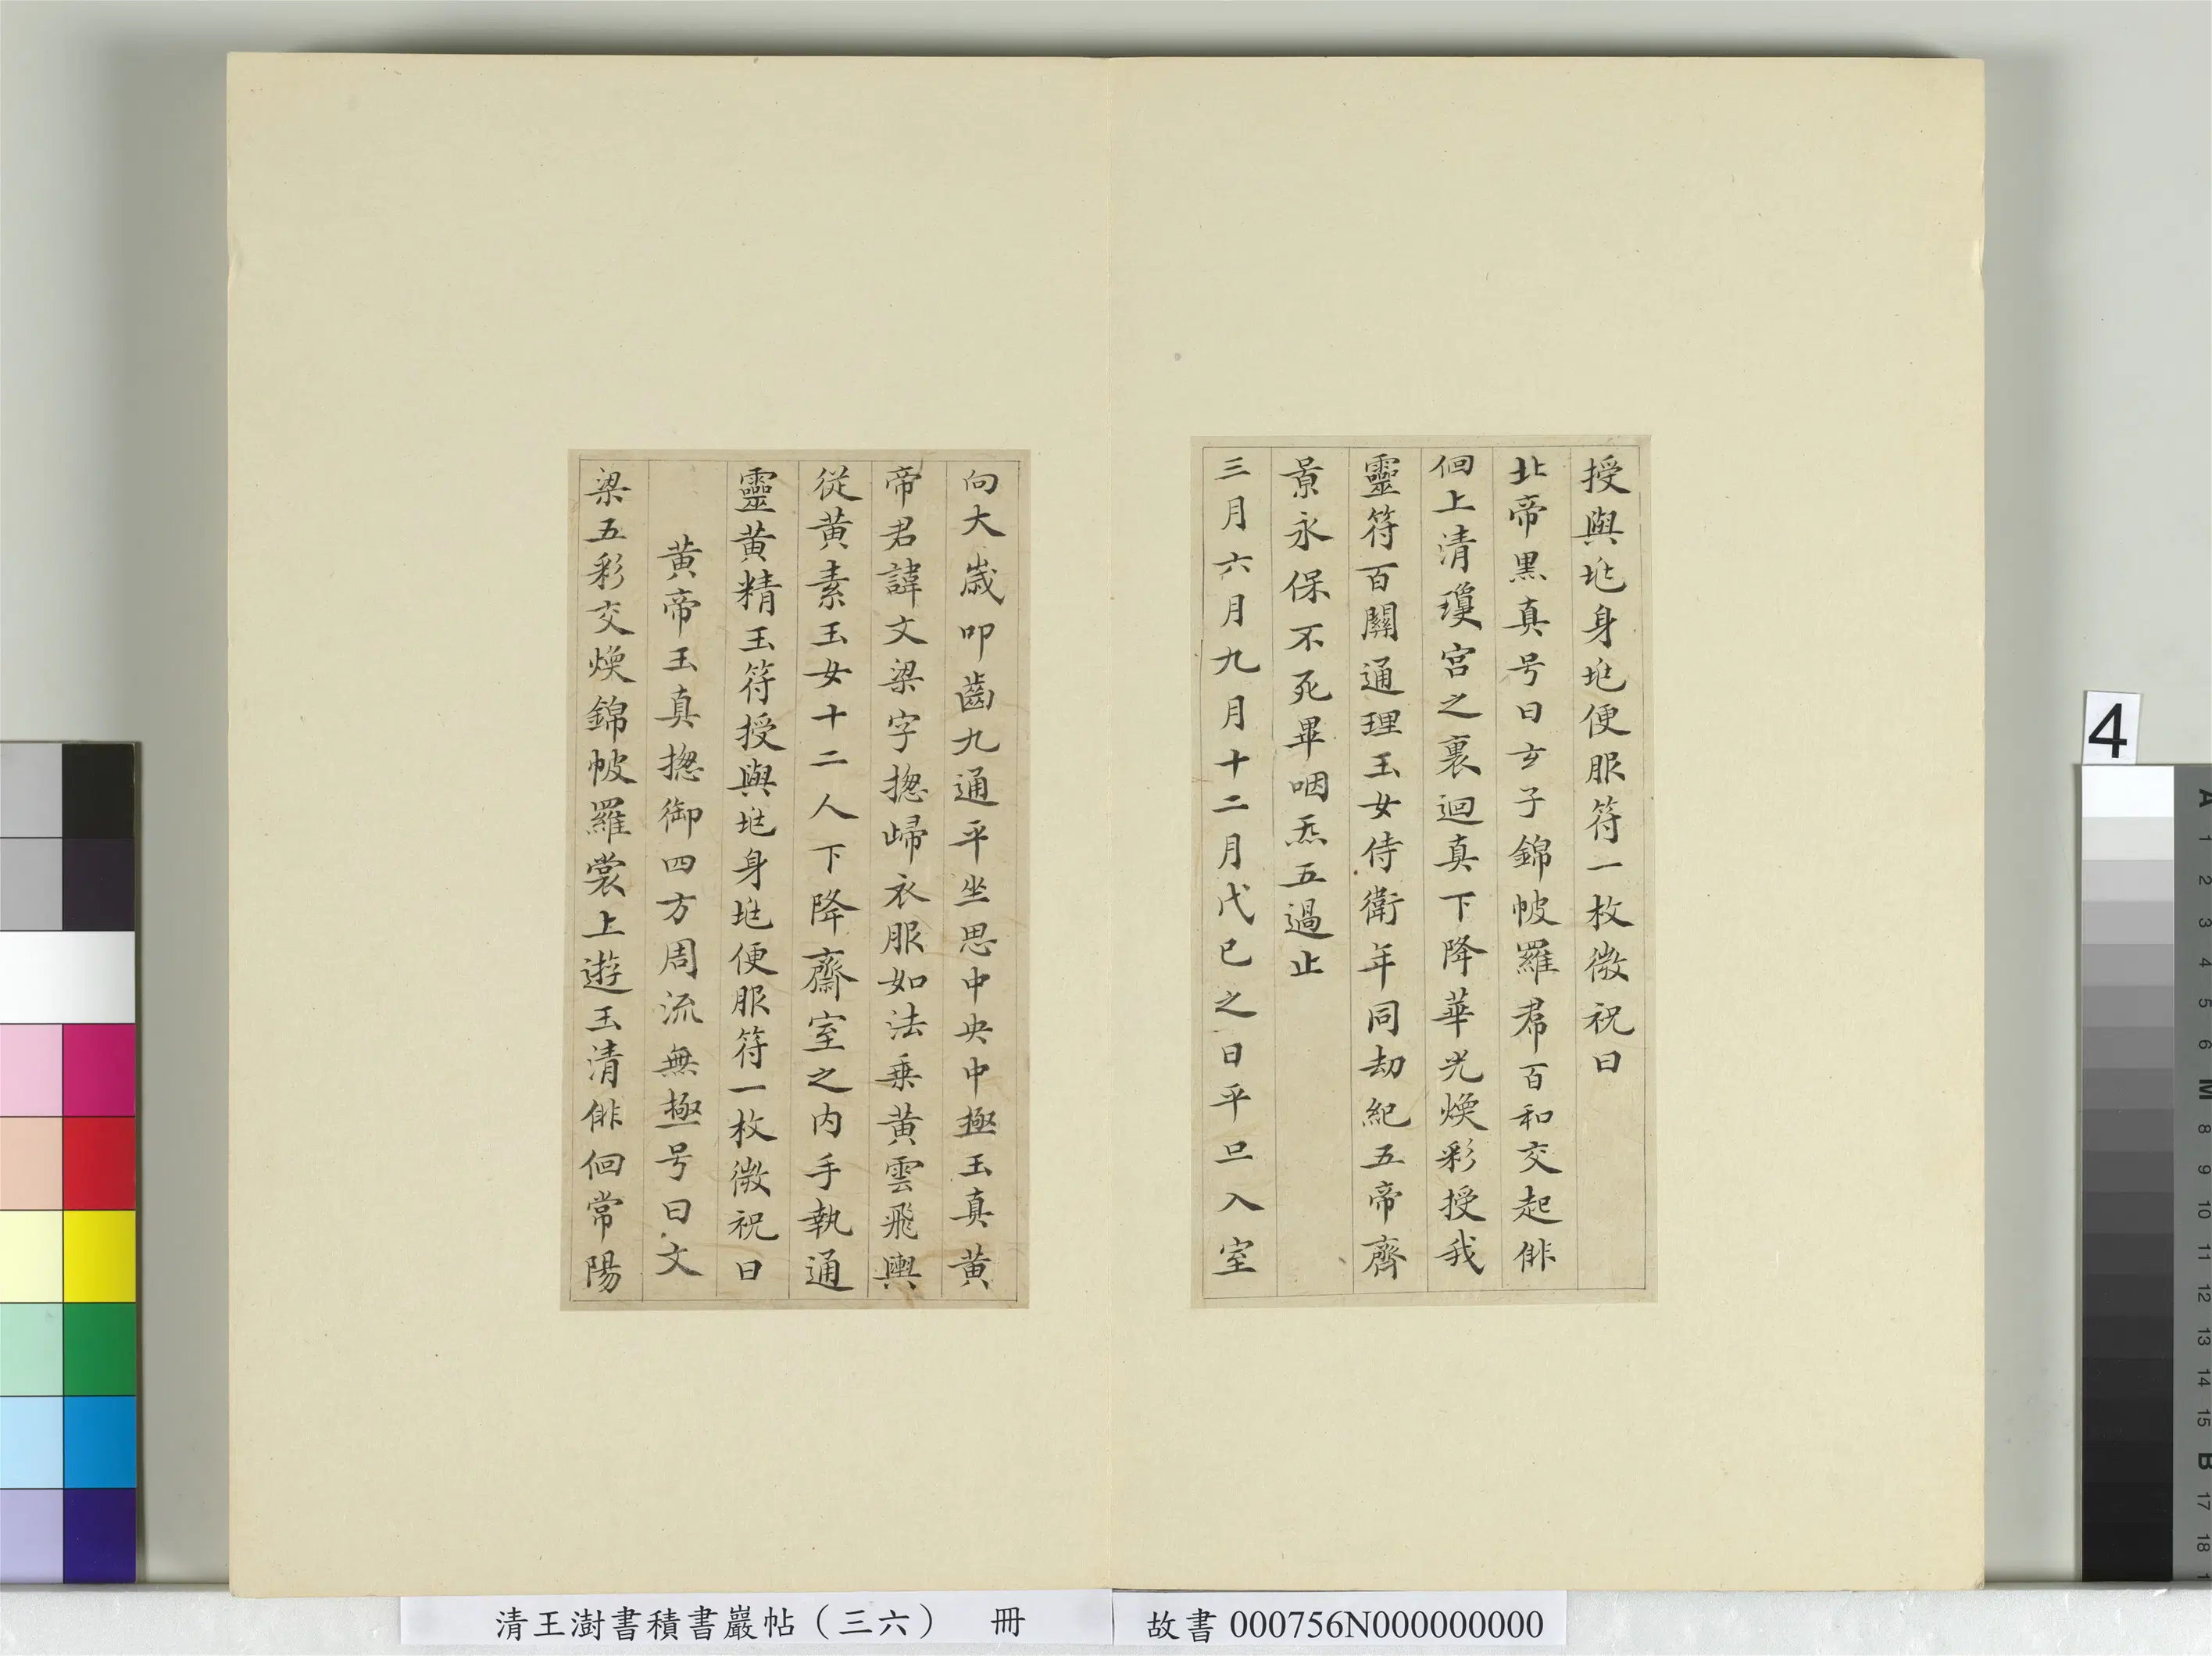 授與𡉏身𡉏便服符一枚微祝曰
北帝黑真号曰玄子錦帔羅帬百和交起俳
徊上清瓊宮之裏迴真下降華光煥彩授我
靈符百關通理玉女侍衛年同劫紀五帝齊
景永保不死畢咽炁五過止
三月六月九月十二月戊巳之日平旦入室
向大歳叩齒九通平坐思中央中極玉真黃
帝君諱文梁字揔歸衣服如法乗黃雲飛輿
從黃素玉女十二人下降齋室之内手執通
靈黃精玉符授與𡉏身𡉏便服符一枚微祝曰
黃帝玉真揔御四方周流無極号曰文
梁五彩交煥錦帔羅裳上遊玉清俳徊常陽
清王澍書積書巖帖（三六） 冊
故書 000756N000000000
4
A 1 2 3 4 5 6 M 8 9 10 11 12 13 14 15 B 17 18